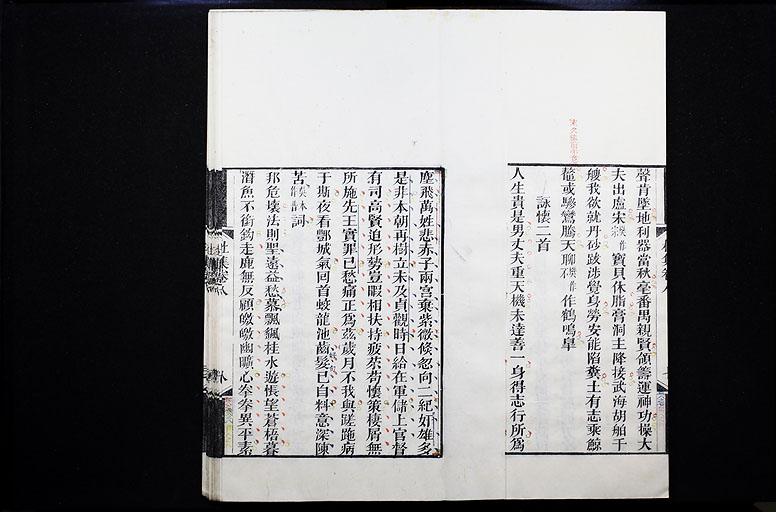 聲肯墜地利器當秋毫番禺親賢領籌運神功操大
夫出盧宋宗樊作寶貝休脂膏洞主降接武海胡舶千
艘我欲就丹砂跋涉覺身勞安能陷糞土有志乘鯨
鼇或驂鸞騰天聊樊作不作鶴鳴皋
詠懷二首
人生貴是男丈夫重天機未達善一身得志行所為
塵飛萬姓悲赤子兩宮棄紫微倏忽向二紀奸雄多
是非本朝再樹立未及貞觀時日給在軍儲上官督
有司高賢迫形勢豈暇相扶持疲苶苟懷策棲屑無
所施先王實罪已愁痛正為茲歲月不我與蹉跎病
于斯夜看酆城氣回首蛟龍池齒髮已自料意深陳
苦吳本作昔詞
邦危壞法則聖遠益愁慕飄颻桂水遊悵望蒼梧暮
潛魚不銜鉤走鹿無反顧皦皦幽曠心拳拳異平素
杜集卷八